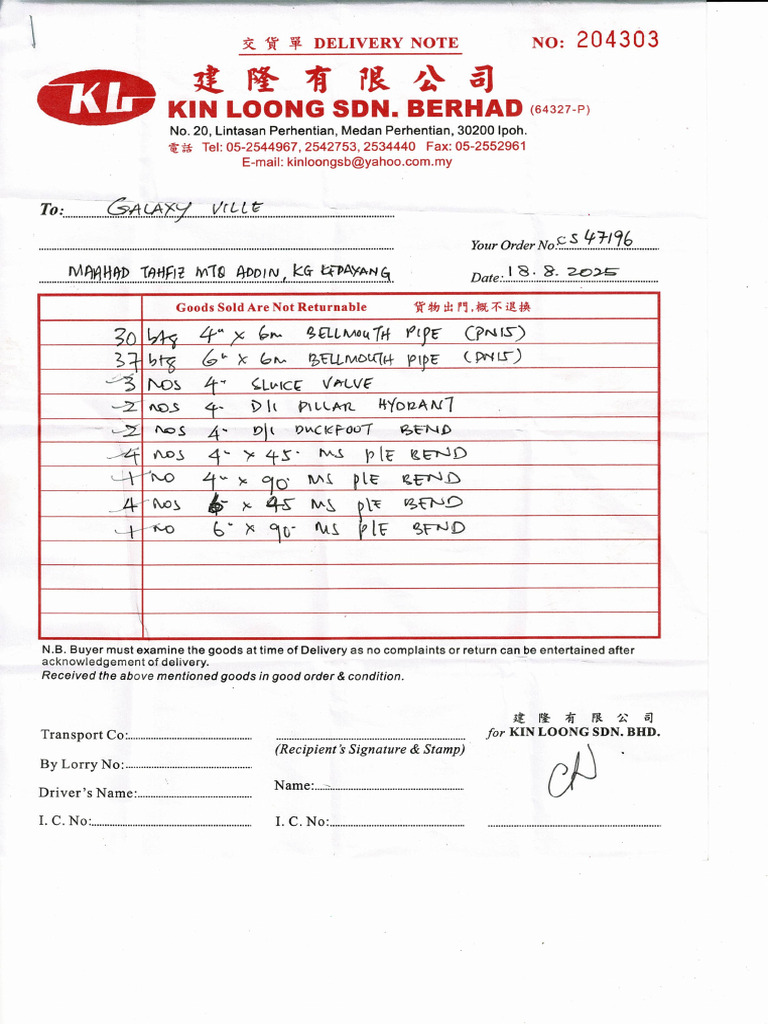 交貨單 DELIVERY NOTE
NO: 204303
KL
建隆有限公司
KIN LOONG SDN. BERHAD (64327-P)
No. 20, Lintasan Perhentian, Medan Perhentian, 30200 Ipoh.
電話 Tel: 05-2544967, 2542753, 2534440 Fax: 05-2552961
E-mail: kinloongsb@yahoo.com.my
To: GALAXY VILLE
Your Order No: CS 47196
MAAHAD TAHFIZ MTQ ADDIN, KG KEPAYANG
Date: 18.8.2025
Goods Sold Are Not Returnable 貨物出門,概不退換
30 btg 4" x 6m BELLMOUTH PIPE (PN15)
37 btg 6" x 6m BELLMOUTH PIPE (PN15)
3 NOS 4" SLUICE VALVE
2 NOS 4" D/I PILLAR HYDRANT
2 NOS 4" D/I DUCKFOOT BEND
4 NOS 4" x 45° MS P/E BEND
1 NO 4" x 90° MS P/E BEND
4 NOS 6" x 45 MS P/E BEND
1 NO 6" x 90° MS P/E BEND
N.B. Buyer must examine the goods at time of Delivery as no complaints or return can be entertained after
acknowledgement of delivery.
Received the above mentioned goods in good order & condition.
建隆有限公司
Transport Co:
(Recipient's Signature & Stamp)
for KIN LOONG SDN. BHD.
By Lorry No:
Name:
Driver's Name:
I. C. No:
I. C. No: